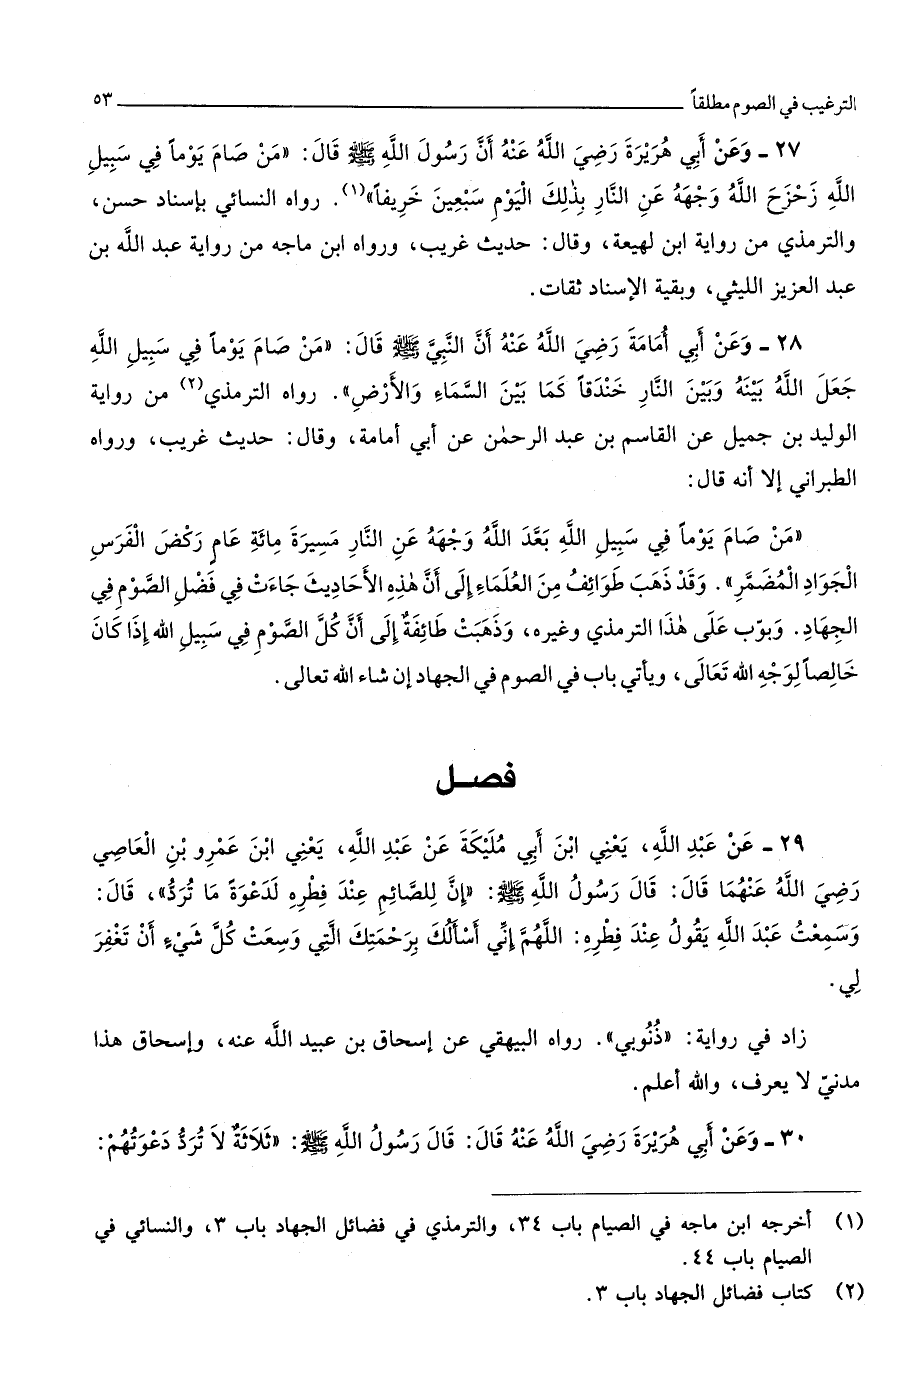 الترغيب في الصوم مطلقاً ٥٣
٢٧ ـ وَعَنْ أَبِي هُرَيْرَةَ رَضِيَ اللَّهُ عَنْهُ أَنَّ رَسُولَ اللَّهِ ﷺ قَالَ: «مَنْ صَامَ يَوْماً فِي سَبِيلِ
اللَّهِ زَحْزَحَ اللَّهُ وَجْهَهُ عَنِ النَّارِ بِذٰلِكَ الْيَوْمِ سَبْعِينَ خَرِيفاً»(١). رواه النسائي بإسناد حسن،
والترمذي من رواية ابن لهيعة، وقال: حديث غريب، ورواه ابن ماجه من رواية عبد اللَّه بن
عبد العزيز الليثي، وبقية الإسناد ثقات.
٢٨ ـ وَعَنْ أَبِي أُمَامَةَ رَضِيَ اللَّهُ عَنْهُ أَنَّ النَّبِيَّ ﷺ قَالَ: «مَنْ صَامَ يَوْماً فِي سَبِيلِ اللَّهِ
جَعَلَ اللَّهُ بَيْنَهُ وَبَيْنَ النَّارِ خَنْدَقاً كَمَا بَيْنَ السَّمَاءِ وَالأَرْضِ». رواه الترمذي(٢) من رواية
الوليد بن جميل عن القاسم بن عبد الرحمٰن عن أبي أمامة، وقال: حديث غريب، ورواه
الطبراني إلا أنه قال:
«مَنْ صَامَ يَوْماً فِي سَبِيلِ اللَّهِ بَعَّدَ اللَّهُ وَجْهَهُ عَنِ النَّارِ مَسِيرَةَ مِائَةِ عَامٍ رَكْضَ الْفَرَسِ
الْجَوَادِ الْمُضَمَّرِ». وَقَدْ ذَهَبَ طَوَائِفُ مِنَ العُلَمَاءِ إِلَى أَنَّ هٰذِهِ الأَحَادِيثَ جَاءَتْ فِي فَضْلِ الصَّوْمِ فِي
الجِهَادِ. وَبوّب عَلَى هٰذَا الترمذي وغيره، وَذَهَبَتْ طَائِفَةٌ إِلَى أَنَّ كُلَّ الصَّوْمِ فِي سَبِيلِ الله إِذَا كَانَ
خَالِصاً لِوَجْهِ الله تَعَالَى، ويأتي باب في الصوم في الجهاد إن شاء الله تعالى.
فصـل
٢٩ ـ عَنْ عَبْدِ اللَّهِ، يَعْنِي ابْنَ أَبِي مُلَيْكَةَ عَنْ عَبْدِ اللَّهِ، يَعْنِي ابْنَ عَمْرِو بْنِ الْعَاصِي
رَضِيَ اللَّهُ عَنْهُمَا قَالَ: قَالَ رَسُولُ اللَّهِ ﷺ: «إِنَّ لِلصَّائِمِ عِنْدَ فِطْرِهِ لَدَعْوَةً مَا تُرَدُّ»، قَالَ:
وَسَمِعْتُ عَبْدَ اللَّهِ يَقُولُ عِنْدَ فِطْرِهِ: اللَّهُمَّ إِنِّي أَسْأَلُكَ بِرَحْمَتِكَ الَّتِي وَسِعَتْ كُلَّ شَيْءٍ أَنْ تَغْفِرَ
لِي.
زاد في رواية: «ذُنُوبِي». رواه البيهقي عن إسحاق بن عبيد اللَّه عنه، وإسحاق هذا
مدنيّ لا يعرف، والله أعلم.
٣٠ ـ وَعَنْ أَبِي هُرَيْرَةَ رَضِيَ اللَّهُ عَنْهُ قَالَ: قَالَ رَسُولُ اللَّهِ ﷺ: «ثَلَاثَةٌ لاَ تُرَدُّ دَعْوَتُهُمْ:
(١) أخرجه ابن ماجه في الصيام باب ٣٤، والترمذي في فضائل الجهاد باب ٣، والنسائي في
الصيام باب ٤٤.
(٢) كتاب فضائل الجهاد باب ٣.